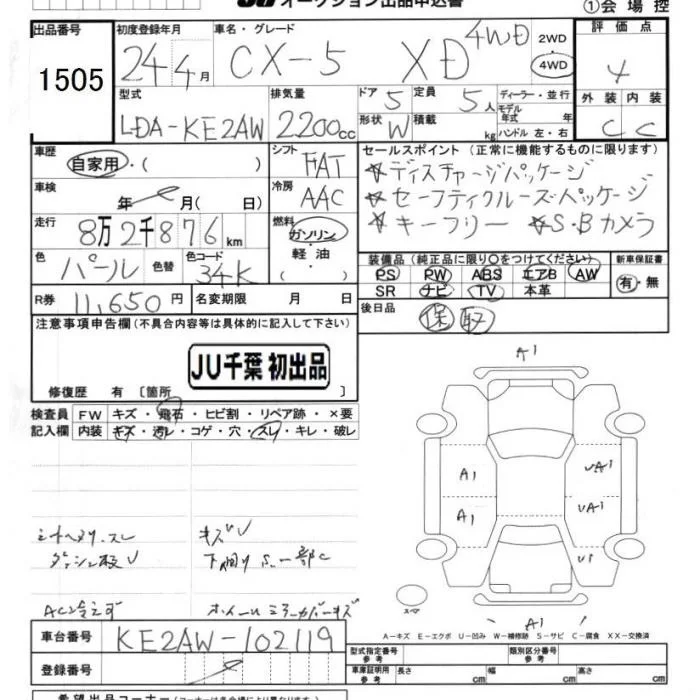 オークション出品申込書
①会場控
出品番号
1505
初度登録年月
24年4月
車名・グレード
CX-5 XD 4WD
2WD
・
4WD
評価点
4
型式
LDA-KE2AW
排気量
2200cc
ドア 5
定員 5人
ディーラー・並行
モデル年式 年式
形状 W
積載 kg
ハンドル 左・右
外装 内装
C C
車歴
自家用・( )
シフト
FAT
セールスポイント (正常に機能するものに限ります)
☆ディスチャージパッケージ
☆セーフティクルーズパッケージ
☆キーフリー ☆S・Bカメラ
車検
年 月( 日)
冷房
AAC
走行
8万2千876km
燃料
ガソリン・
軽油・
( )
色
パール
色替
色コード
34K
装備品 (純正品に限り○をつけてください)
新車保証書
PS PW ABS エアB AW
SR ナビ TV 本革
有・無
R券 11,650円
名変期限 月 日
後日品
保 取
注意事項申告欄 (不具合内容等は具体的に記入して下さい)
JU千葉 初出品
修復歴 有〔箇所 〕
検査員記入欄
FW キズ・飛石・ヒビ割・リペア跡・×要
内装 キズ・汚レ・コゲ・穴・スレ・キレ・破レ
A1
A1 UA1
A1 UA1
U1
キズU
ダッシュ板U
下回りS.一部C
AC冷えず
ホイールミラーカバーキズ
スマ
A1
A－キズ E－エクボ U－凹み W－補修跡 S－サビ C－腐食 XX－交換済
車台番号 KE2AW-102119
登録番号
型式指定番号 参考
類別区分番号 参考
車庫証明用 参考 長さ cm 幅 cm 高さ cm
希望出品コーナー